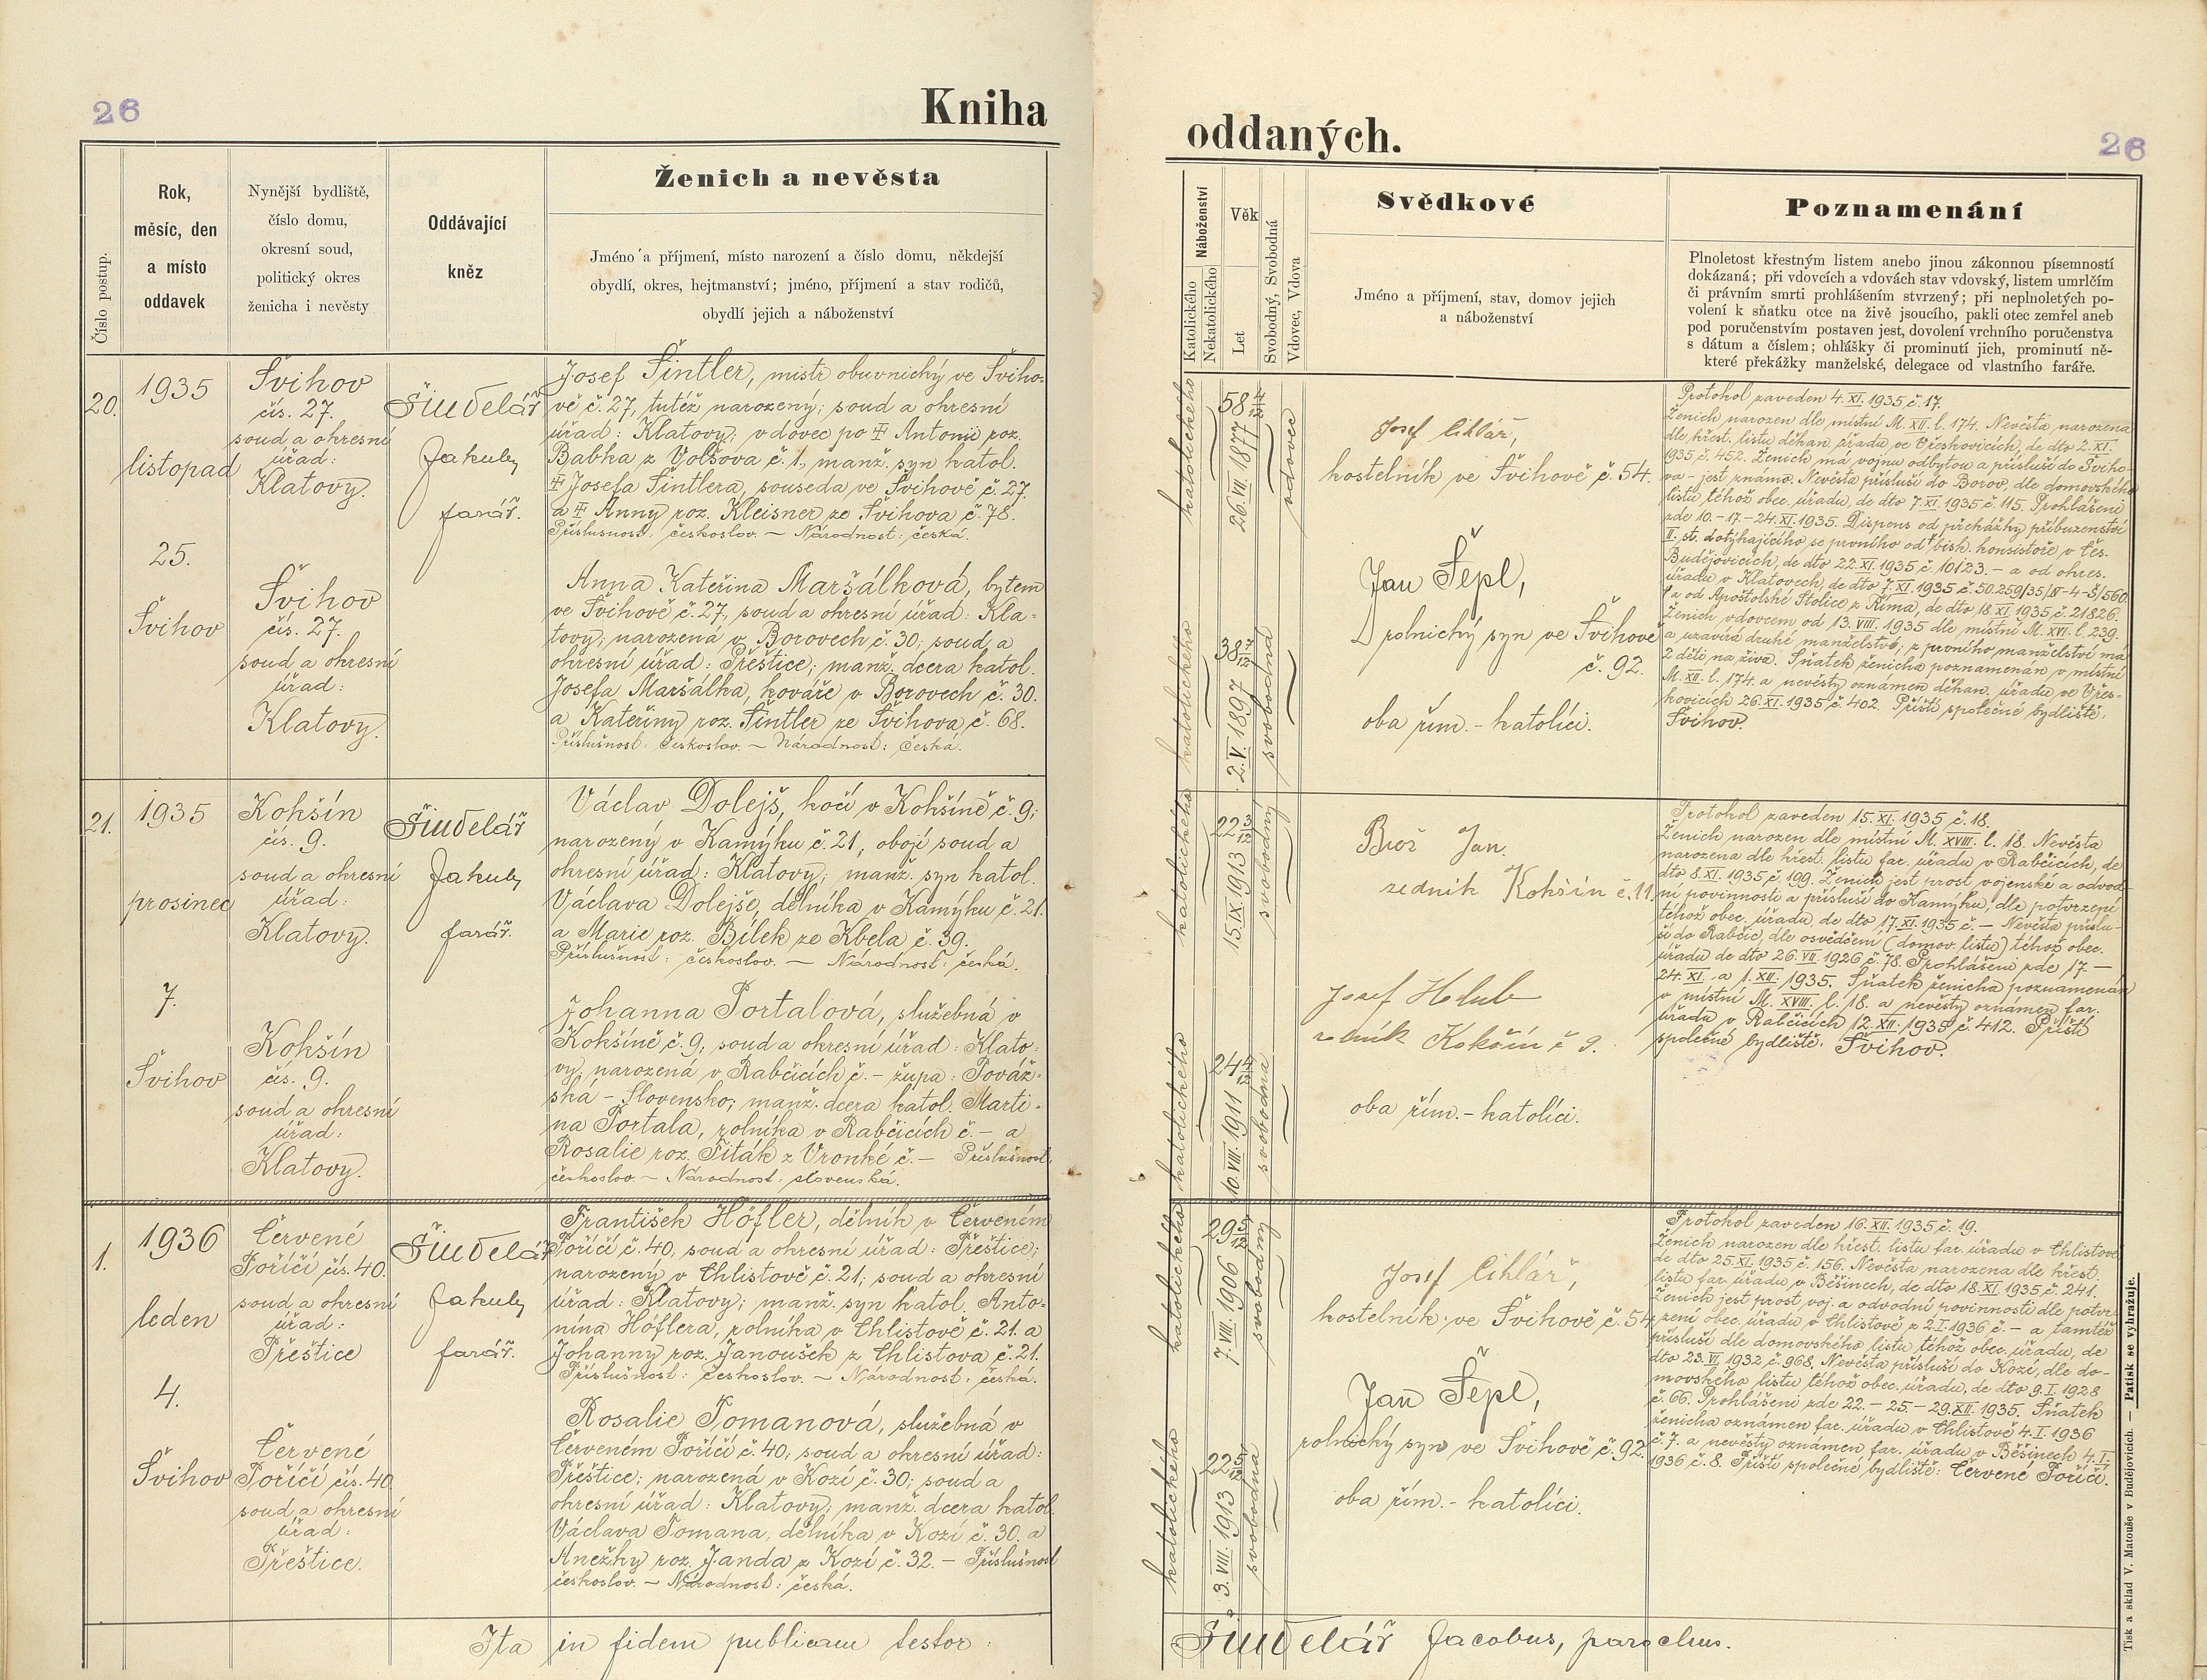 26
Kniha
Číslo postup.
Rok,
měsíc, den
a místo
oddavek
Nynější bydliště,
číslo domu,
okresní soud,
politický okres
ženicha i nevěsty
Oddávající
kněz
Ženich a nevěsta
Jméno a příjmení, místo narození a číslo domu, někdejší
obydlí, okres, hejtmanství; jméno, příjmení a stav rodičů,
obydlí jejich a náboženství
20.
1935
listopad
25.
Švihov
Švihov
čís. 27.
soud a okresní
úřad:
Klatovy.
Švihov
čís. 27.
soud a okresní
úřad:
Klatovy.
Šindelář
Jakub,
farář.
Josef Šintler, mistr obuvnický ve Šviho-
vě č. 27, tutéž narozený; soud a okresní
úřad: Klatovy; vdovec po ‡ Antonii roz.
Babka z Volšova č. 1., manž. syn katol.
‡ Josefa Šintlera, souseda ve Švihově č. 27.
a ‡ Anny roz. Kleisner ze Švihova č. 78.
Příslušnost: českoslov. – Národnost: česká.
Anna Kateřina Maršálková, bytem
ve Švihově č. 27, soud a okresní úřad: Kla-
tovy; narozená v Borovech č. 30; soud a
okresní úřad: Přeštice; manž. dcera katol.
Josefa Maršálka, kováře v Borovech č. 30.
a Kateřiny roz. Šintler ze Švihova č. 68.
Příslušnost: českoslov. – Národnost: česká.
21.
1935
prosinec
7.
Švihov
Kokšín
čís. 9.
soud a okresní
úřad:
Klatovy.
Kokšín
čís. 9.
soud a okresní
úřad:
Klatovy.
Šindelář
Jakub,
farář.
Václav Dolejš, kočí v Kokšíně č. 9;
narozený v Kamýku č. 21, obojí soud a
okresní úřad: Klatovy; manž. syn katol.
Václava Dolejše, dělníka v Kamýku č. 21.
a Marie roz. Bílek ze Kbela č. 39.
Příslušnost: českoslov. – Národnost: česká.
Johanna Portalová, služebná v
Kokšíně č. 9; soud a okresní úřad: Klato-
vy; narozená v Rabčicích č. – župa: Považ-
ská – Slovensko; manž. dcera katol. Marti-
na Portala, rolníka v Rabčicích č. – a
Rosalie roz. Fiták z Vronké č. – Příslušnost:
českoslov. – Národnost: slovenská.
1.
1936
leden
4.
Švihov
Červené
Poříčí čís. 40.
soud a okresní
úřad:
Přeštice
Červené
Poříčí čís. 40
soud a okresní
úřad:
Přeštice.
Šindelář
Jakub,
farář.
František Höfler, dělník v Červeném
Poříčí č. 40, soud a okresní úřad: Přeštice;
narozený v Chlistově č. 21; soud a okresní
úřad: Klatovy; manž. syn katol. Anto-
nína Höflera, rolníka v Chlistově č. 21. a
Johanny roz. Janoušek z Chlistova č. 21.
Příslušnost: českoslov. – Národnost: česká.
Rosalie Tomanová, služebná v
Červeném Poříčí č. 40; soud a okresní úřad:
Přeštice; narozená v Kozí č. 30; soud a
okresní úřad: Klatovy; manž. dcera katol.
Václava Tomana, dělníka v Kozí č. 30. a
Anežky roz. Janda z Kozí č. 32. – Příslušnost
českoslov. – Národnost: česká.
Ita in fidem publicam testor:
oddaných.
26
Náboženství
Katolického
Nekatolického
Věk
Let
Svobodný, Svobodná
Vdovec, Vdova
Svědkové
Jméno a příjmení, stav, domov jejich
a náboženství
Poznamenání
Plnoletost křestným listem anebo jinou zákonnou písemností
dokázaná; při vdovcích a vdovách stav vdovský, listem umrlčím
či právním smrti prohlášením stvrzený; při neplnoletých po-
volení k sňatku otce na živě jsoucího, pakli otec zemřel aneb
pod poručenstvím postaven jest, dovolení vrchního poručenstva
s dátum a číslem; ohlášky či prominutí jich, prominutí ně-
které překážky manželské, delegace od vlastního faráře.
katolického
58 4/12
26.VII.1877
vdovec
katolického
38 7/12
2.V.1897
svobodná
Josef Cihlář,
kostelník ve Švihově č. 54.
Jan Šepl,
rolnický syn ve Švihově
č. 92.
oba řím.-katolíci.
Protokol zaveden 4.XI.1935 č. 17.
Ženich narozen dle místní M. XII. l. 174. Nevěsta narozena
dle křest. listu děkan. úřadu ve Vřeskovicích, de dto 2.XI.
1935 č. 452. Ženich má vojnu odbytou a přísluší do Šviho-
va – jest známo. Nevěsta přísluší do Borov, dle domovského
listu téhož obec. úřadu, de dto 7.XI.1935 č. 115. Prohlášeni
zde 10.–17.–24.XI.1935. Dispens od překážky příbuzenství
II. st. dotýkajícího se prvního od † bisk. konsistoře v Čes.
Budějovicích, de dto 22.XI.1935 č. 10123. – a od okres.
úřadu v Klatovech, de dto 7.XI.1935 č. 50.259/35/IV-4-Š/560
† a od Apoštolské Stolice z Říma, de dto 18.XI.1935 č. 21826.
Ženich vdovcem od 13.VIII.1935 dle místní M. XVI. l. 239.
a uzavírá druhé manželství; z prvního manželství má
2 děti na živu. Sňatek ženicha poznamenán v místní
M. XII. l. 174. a nevěsty oznámen děkan. úřadu ve Vřes-
kovicích 26.XI.1935 č. 402. Příští společné bydliště:
Švihov.
katolického
22 3/12
15.IX.1913
svobodný
katolického
24 4/12
10.VIII.1911
svobodná
Brož Jan.
zedník Kokšín č. 11.
Josef Holub
rolník Kokšín č 9.
oba řím.-katolíci.
Protokol zaveden 15.XI.1935 č. 18.
Ženich narozen dle místní M. XVIII. l. 18. Nevěsta
narozena dle křest. listu far. úřadu v Rabčicích, de
dto 8.XI.1935 č. 199. Ženich jest prost vojenské a odvod-
ní povinnosti a přísluší do Kamýku, dle potvrzení
téhož obec. úřadu, de dto 17.XI.1935 č. – Nevěsta příslu-
ší do Rabčic, dle osvědčení (domov. listu) téhož obec.
úřadu de dto 26.VII.1926 č. 78. Prohlášeni zde 17.–
24.XI. a 1.XII.1935. Sňatek ženicha poznamenán
v místní M. XVIII. l. 18. a nevěsty oznámen far.
úřadu v Rabčicích 12.XII.1935 č. 412. Příští
společné bydliště: Švihov.
katolického
29 5/12
7.VIII.1906
svobodný
katolického
22 5/12
3.VIII.1913
svobodná
Josef Cihlář,
kostelník ve Švihově č. 54.
Jan Šepl,
rolnický syn ve Švihově č. 92.
oba řím.-katolíci.
Protokol zaveden 16.XII.1935 č. 19.
Ženich narozen dle křest. listu far. úřadu v Chlistově
de dto 25.XI.1935 č. 156. Nevěsta narozena dle křest.
listu far. úřadu v Běšinech, de dto 18.XI.1935 č. 241.
Ženich jest prost voj. a odvodní povinnosti dle potvr-
zení obec. úřadu v Chlistově z 2.I.1936 č. – a tamtéž
přísluší dle domovského listu téhož obec. úřadu, de
dto 23.VI.1932 č. 968. Nevěsta přísluší do Kozí, dle do-
movského listu téhož obec. úřadu, de dto 9.I.1928
č. 66. Prohlášeni zde 22.–25.–29.XII.1935. Sňatek
ženicha oznámen far. úřadu v Chlistově 4.I.1936
č. 7. a nevěsty oznámen far. úřadu v Běšinech 4.I.
1936 č. 8. Příští společné bydliště: Červené Poříčí.
Šindelář Jacobus, parochus.
Tisk a sklad V. Matouše v Budějovicích. — Patisk se vyhražuje.